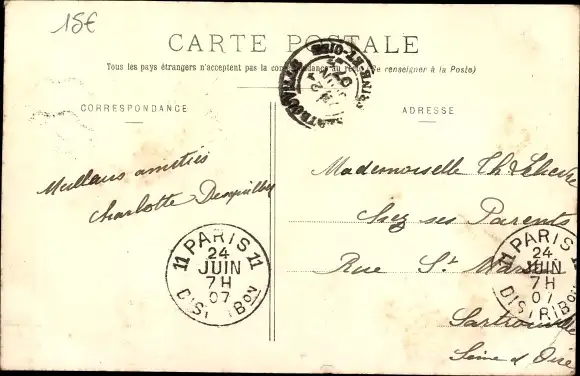 15€
CARTE POSTALE
Tous les pays étrangers n'acceptent pas la correspondance au recto (Se renseigner à la Poste)
CORRESPONDANCE
ADRESSE
SARTROUVILLE
SEINE-ET-OISE
Meilleurs amitiés
Charlotte
Mademoiselle Th Lebevre
Chez ses Parents
Rue St
Sartrouville
Seine et Oise
PARIS
11 11
24
JUIN
7H
07
DISTRIBON
PARIS
11
24
JUIN
7H
07
DISTRIBON